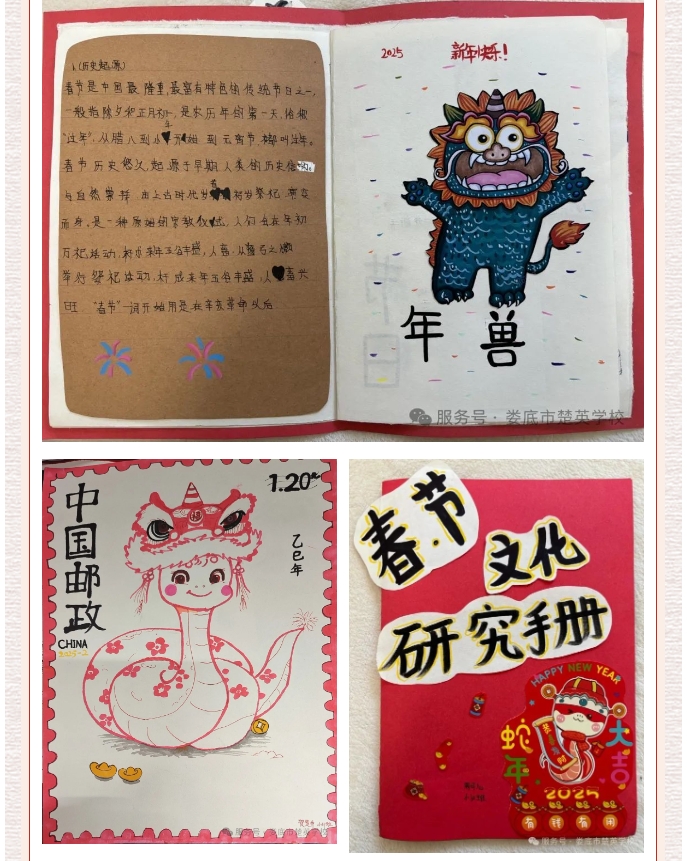 1.(历史起源)
春节是中国最隆重最富有特色的传统节日之一,
一般指除夕和正月初一,是农历年的第一天,俗称
“过年”,从腊八到小年开始到元宵节都叫过年。
春节历史悠久,起源于早期人类的历史信仰。
与自然崇拜
而身,是一种原始的宗教仪式,人们会在年初
人畜
举行祭祀活动,祈盛来年五谷丰盛,人畜兴
旺 “春节”一词开始用是在辛亥革命以后
2025 新年快乐!
年兽
服务号·娄底市楚英学校
中国邮政
CHINA
2025-2
1.20元
乙巳年
服务号·娄底市楚英学校
春节
文化
研究手册
HAPPY NEW YEAR
蛇年
大吉
2025
有钱有闲
服务号·娄底市楚英学校